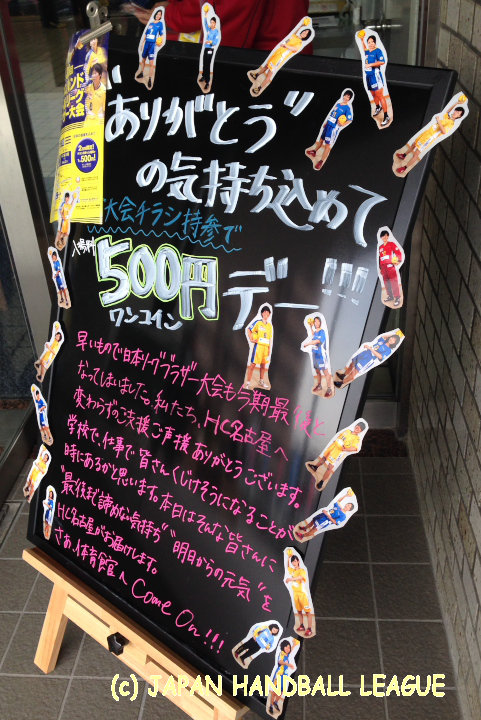 "ありがとう"
の気持ち込めて
大会チラシ持参で
入場料
500円デー!!!
ワンコイン
早いもので日本リーグブラザー大会も今期最後と
なってしまいました。私たち、HC名古屋へ
変わらずのご支援ご声援ありがとうございます。
学校で、仕事で皆さんくじけそうになることが
時にあるかと思います。本日はそんな皆さんに
"最後まで諦めない気持ち" "明日からの元気"を
HC名古屋がお届けします。
さあ、体育館へ Come On!!!
(c) JAPAN HANDBALL LEAGUE